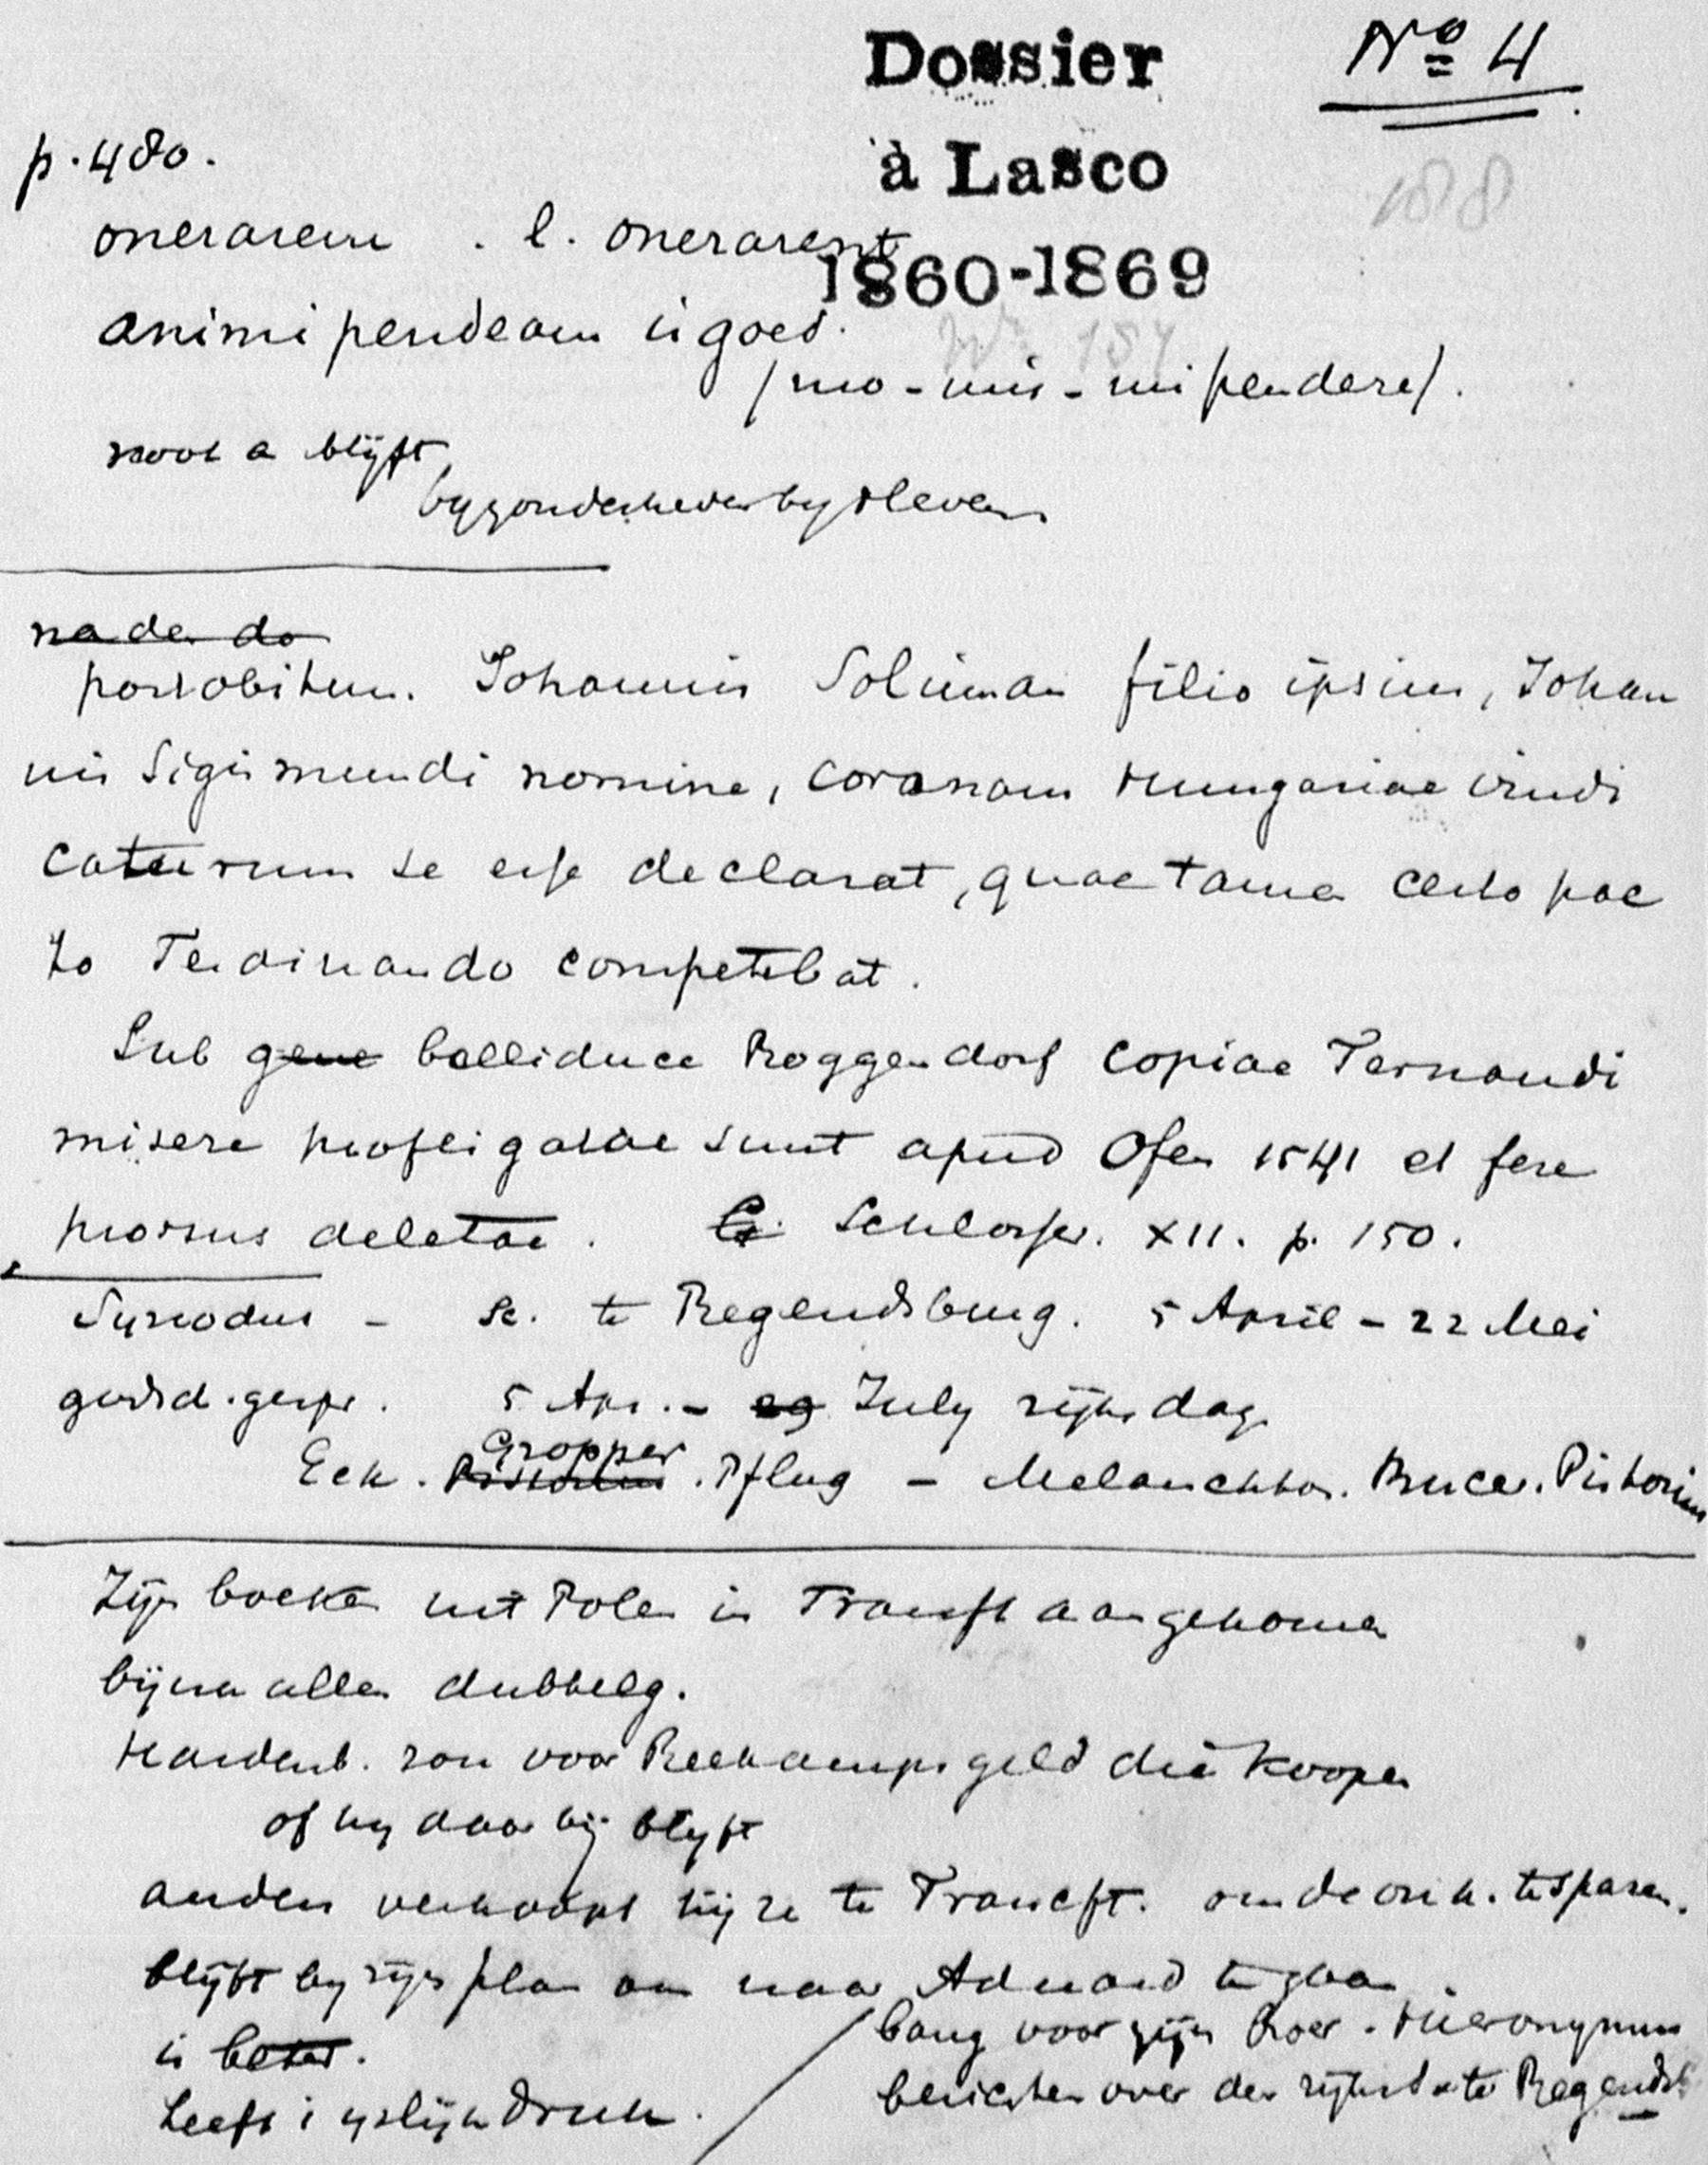 Dossier
à Lasco
1860-1869
No 4
188
p. 480.
onerarem . l. onerarent
animi pendeam is goed.
(mo - mis - mi pendere).
noot a blijft,
byzonderheden by t leven
na den do
post obitum. Johannis Soliman filio ipsius, Johan
nis Sigismundi nomine, coronam Hungariae vindi
caturum se esse declarat, quae tamen certo pac
to Ferdinando competebat.
Sub gene belliduce Roggendorf copiae Fernandi
misere profligatae sunt apud Ofen 1541 et fere
prorsus deletae. Schlosser. XII. p. 150.
Synodus - sc. te Regendsburg. 5 April - 22 Mei
godsd. gespr. 5 Apr. - 29 July rijksdag
Gropper
Eck. Pistorius . Pflug - Melanchton. Bucer. Pistorius
Zijn boeken uit Polen in Francft aangekomen
bijna allen dubbelg.
Hardenb. zou voor Reekamps geld die koopen
of hy daar bij blyft
anders verkoopt hij ze te Francft. om de onk. te sparen.
blijft by zijn plan om naar Aduard te gaan.
is beter.
Leeft in yslijken druk.
bang voor zijn Broer. Hieronymus
berichten over den rijksd. te Regendsb